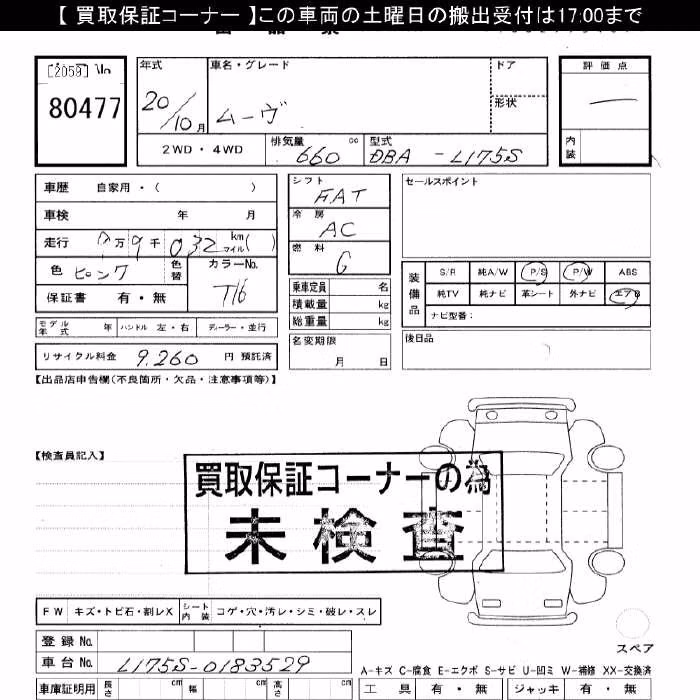 【 買取保証コーナー 】この車両の土曜日の搬出受付は17:00まで
[2059] No
80477
年式 車名・グレード ドア 評価点
20/10月 ムーヴ 形状
2WD・4WD 排気量 660 cc 型式 DBA - L175S 内装
車歴 自家用・( ) シフト FAT セールスポイント
車検 年 月 冷房 AC
走行 万9千032 km マイル ( ) 燃料 G
色 ピンク 色替 カラーNo. T16
保証書 有・無
乗車定員 名
積載量 kg
総重量 kg
装備品 S/R 純A/W P/S P/W ABS
純TV 純ナビ 革シート 外ナビ エアB
ナビ型番:
モデル年式 年 ハンドル 左・右 ディーラー・並行
名変期限 月 日 後日品
リサイクル料金 9,260 円 預託済
【出品店申告欄(不良箇所・欠品・注意事項等)】
【検査員記入】
買取保証コーナーの為
未検査
FW キズ・トビ石・割レX シート内装 コゲ・穴・汚レ・シミ・破レ・スレ
登録No.
スペア
車台No. L175S-0183529
A-キズ C-腐食 E-エクボ S-サビ U-凹ミ W-補修 XX-交換済
車庫証明用 長さ cm 幅 cm 高さ cm 工具 有・無 ジャッキ 有・無